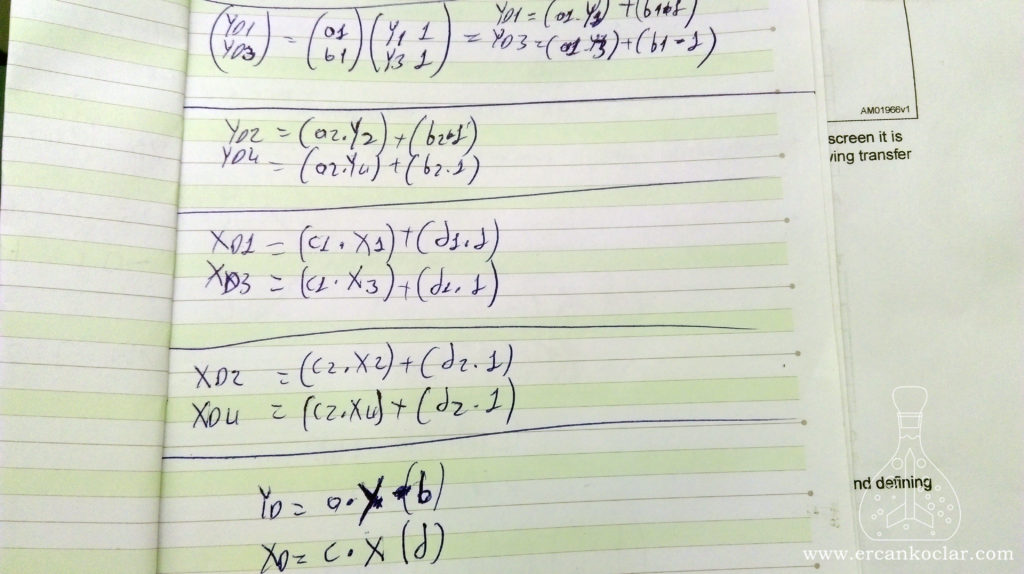 (YD1 YD3) = (a1 b1) (Y1 1 Y3 1) = YD1 = (a1.Y1) + (b1.1)
YD3 = (a1.Y3) + (b1.1)
YD2 = (a2.Y2) + (b2.1)
YD4 = (a2.Y4) + (b2.1)
XD1 = (c1.X1) + (d1.1)
XD3 = (c1.X3) + (d1.1)
XD2 = (c2.X2) + (d2.1)
XD4 = (c2.X4) + (d2.1)
YD = a.Y (b)
XD = c.X (d)
AM01966v1
screen it is
ving transfer
nd defining
www.ercankoclar.com